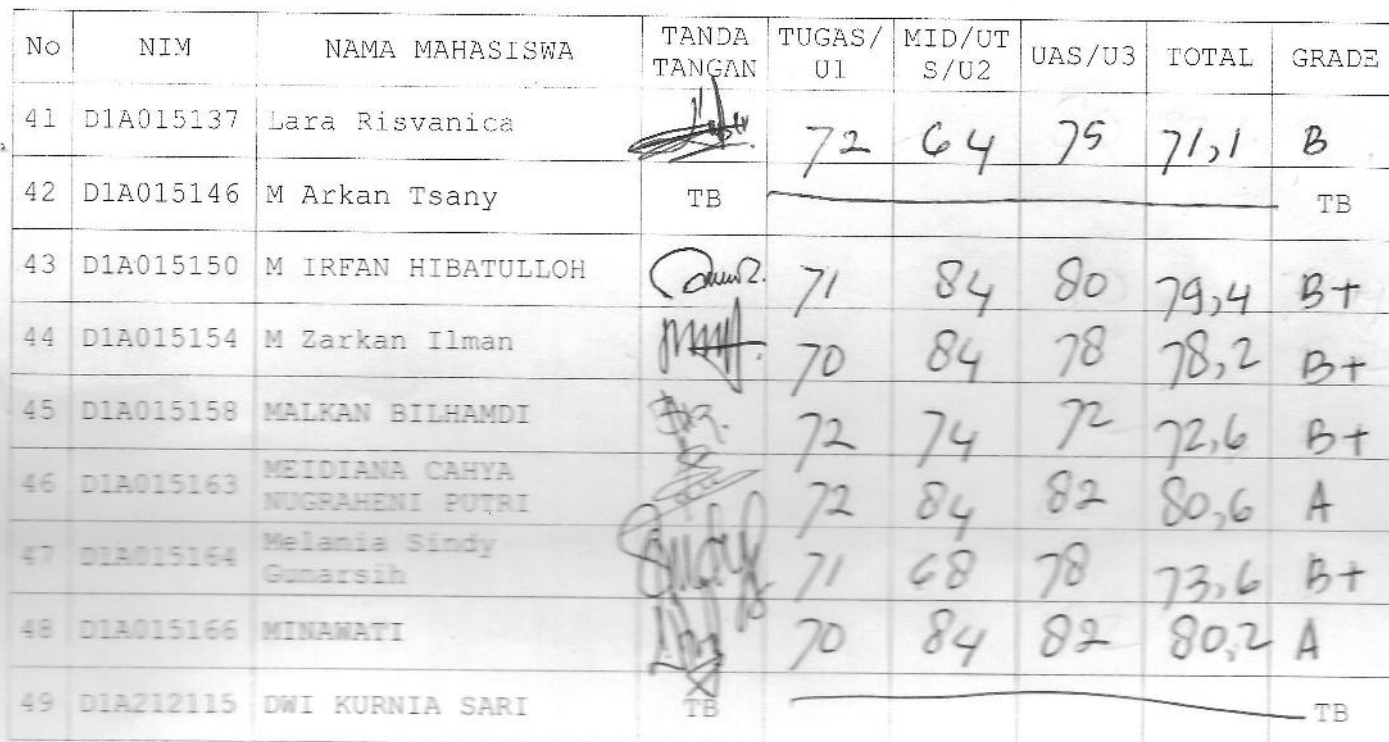 No NIM NAMA MAHASISWA TANDA TANGAN TUGAS/ U1 MID/UT S/U2 UAS/U3 TOTAL GRADE
41 D1A015137 Lara Risvanica 72 64 75 71,1 B
42 D1A015146 M Arkan Tsany TB TB
43 D1A015150 M IRFAN HIBATULLOH 71 84 80 79,4 B+
44 D1A015154 M Zarkan Ilman 70 84 78 78,2 B+
45 D1A015158 MALKAN BILHAMDI 72 74 72 72,6 B+
46 D1A015163 MEIDIANA CAHYA NUGRAHENI PUTRI 72 84 82 80,6 A
47 D1A015164 Melania Sindy Gunarsih 71 68 78 73,6 B+
48 D1A015166 MINAWATI 70 84 82 80,2 A
49 D1A212115 DWI KURNIA SARI TB TB